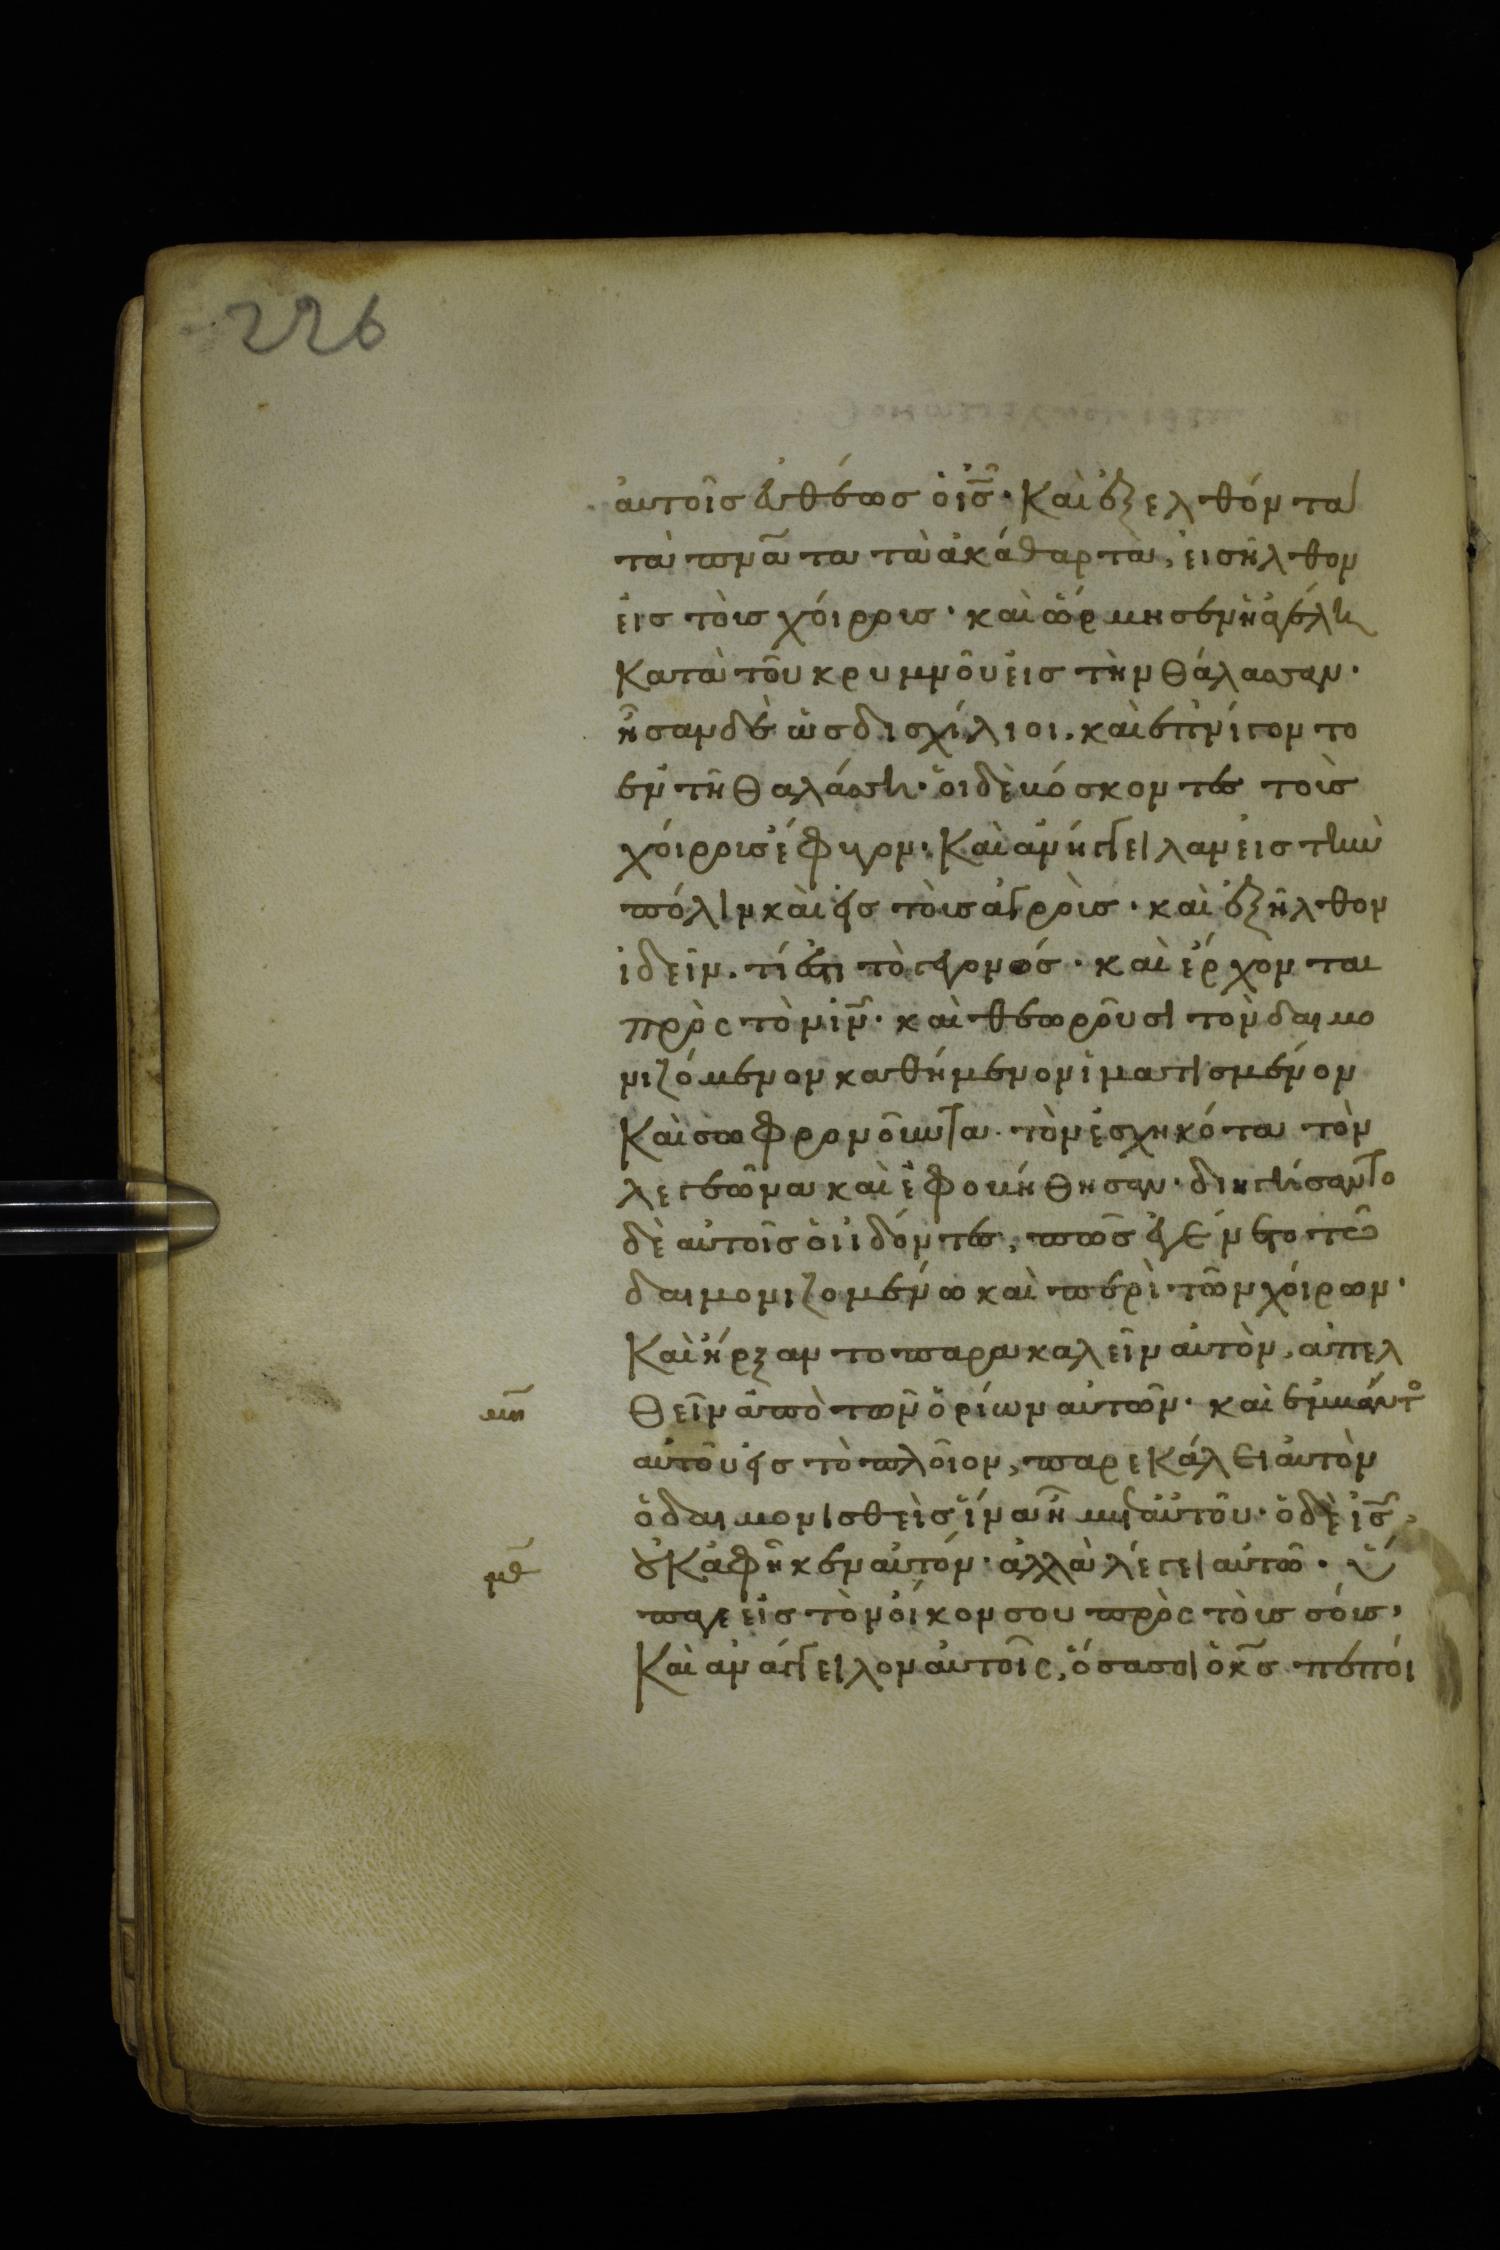 226
ἀυτοῖσ ἐυθέωσ ὁ ἰσ̅· Καὶ ἐξελθόντα
τὰ πνα̅τα τὰ ἀκάθαρτα, ἐισῆλθον
ἐισ τοὺσ χόιρουσ· καὶ ὥρμησεν ἡ ἀγέλη
Κατὰ τοῦ κρυμνοῦ ἐισ τὴν θάλασσαν·
ἦσαν δὲ ὡσ δισχίλιοι. καὶ ἐπνίγοντο
ἐν τῆ θαλάσση· ὁι δὲ βόσκοντεσ τοὺσ
χόιρουσ ἔφυγον· Καὶ ἀνήγγειλαν ἐισ τὴν
πόλιν καὶ ἐισ τοὺσ ἀγροὺσ· καὶ ἐξῆλθον
ἰδεῖν. τί ἐστι τὸ γεγονοσ· καὶ ἔρχονται
πρὸς τὸν ιν̅· καὶ θεωροῦσι τὸν δαιμο
νιζόμενον καθήμενον ἱματισμένον
Καὶ σωφρονοῦντα· τὸν ἐσχηκότα τὸν
λεγεῶνα καὶ ἐφοβήθησαν· διηγήσαντο
δὲ αὐτοῖσ ὁι ἰδόντεσ, πῶσ ἐγένετο τῶ
δαιμονιζομένω καὶ περὶ τῶν χόιρων·
Καὶ ἤρξαντο παρακαλεῖν αὐτὸν, ἀπελ
μη̅ θεῖν ἀπὸ τῶν ὁρίων αὐτῶν· καὶ ἐμβάντο
αὐτοῦ ἐισ τὸ πλοῖον, παρεκάλει αὐτὸν
ὁ δαιμονισθεὶσ ἵνα ἦ μετ αὐτοῦ· ὁ δὲ ἰσ̅
μθ̅ οὐκ ἀφῆκεν αὐτόν· ἀλλὰ λέγει αὐτῶ· ὕ
παγε ἐισ τὸν ὀίκον σου πρὸς τοὺσ σόυσ,
Καὶ ἀνάγγειλον αὐτοῖς, ὅσα σοι ὁ κσ̅ πεποί